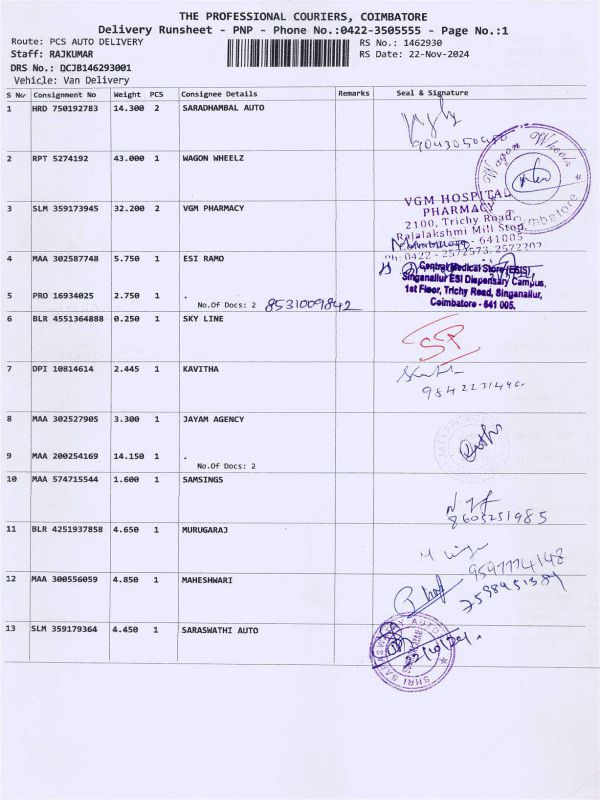 THE PROFESSIONAL COURIERS, COIMBATORE
Delivery Runsheet - PNP - Phone No.:0422-3505555 - Page No.:1
Route: PCS AUTO DELIVERY
RS No.: 1462930
Staff: RAJKUMAR
RS Date: 22-Nov-2024
DRS No.: DCJB146293001
Vehicle: Van Delivery
S No Consignment No Weight PCS Consignee Details Remarks Seal & Signature
1 HRD 750192783 14.300 2 SARADHAMBAL AUTO
2 RPT 5274192 43.000 1 WAGON WHEELZ
Wagon Wheelz
Coimbatore
3 SLM 359173945 32.200 2 VGM PHARMACY
VGM HOSPITAL
PHARMACY
2100, Trichy Road,
Rajalakshmi Mill Stop,
641005
Ph: 0422 - 2572573, 2572202
4 MAA 302587748 5.750 1 ESI RAMO
Central Medical Store (ESIS)
Singanallur ESI Dispensary Campus,
1st Floor, Trichy Road, Singanallur,
Coimbatore - 641 005.
5 PRO 16934025 2.750 1 .
No.Of Docs: 2 8531009842
6 BLR 4551364888 0.250 1 SKY LINE
7 DPI 10814614 2.445 1 KAVITHA
8 MAA 302527905 3.300 1 JAYAM AGENCY
9 MAA 200254169 14.150 1 .
No.Of Docs: 2
10 MAA 574715544 1.600 1 SAMSINGS
8605251985
11 BLR 4251937858 4.650 1 MURUGARAJ
9597774148
12 MAA 300556059 4.850 1 MAHESHWARI
7598951381
13 SLM 359179364 4.450 1 SARASWATHI AUTO